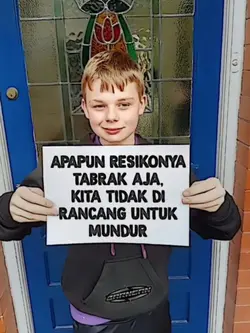 APAPUN RESIKONYA
TABRAK AJA,
KITA TIDAK DI
RANCANG UNTUK
MUNDUR